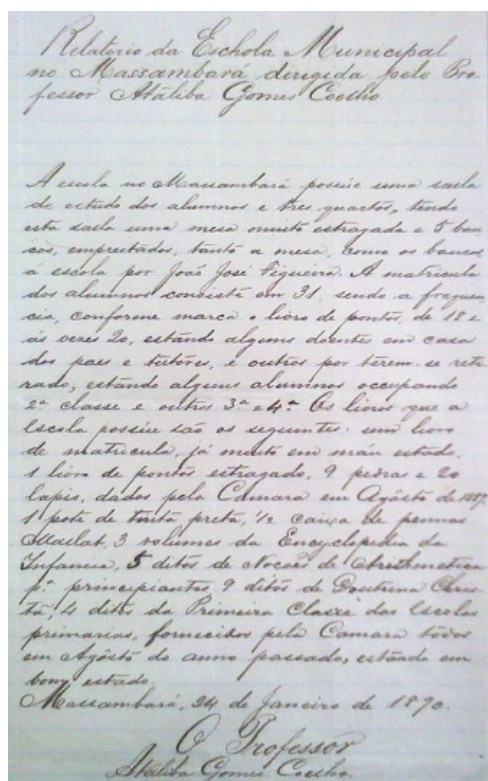 Relatorio da Eschola Municipal
no Massambará dirigida pelo Pro-
fessor Ataliba Gomes Coelho
A escola no Massambará possue uma sala
de estudo dos alumnos e tres quartos, tendo
esta sala uma mesa muito estragada e 5 ban-
cos, emprestados, tanto a mesa, como os bancos
a escola por João José Figueira. A matricula
dos alumnos consiste em 31, sendo a frequen-
cia, conforme marca o livro de pontos, de 18 e
ás vezes 20, estando alguns doentes em casa
dos paes e tutores, e outros por terem-se reti-
rado; estando alguns alumnos occupando
2ª classe e outros 3ª e 4ª. Os livros que a
escola possue são os seguintes: um livro
de matricula, já muito em máu estado.
1 livro de pontos estragado, 9 pedras e 20
lapis, dados pela Camara em Agôsto de 1889.
1 pote de tinta preta, ½ caixa de pennas
Mallat, 3 volumes da Encyclopedia da
Infancia, 5 ditos de Nocões de Arithmetica
pª principiantes, 9 ditos de Doutrina Chris-
tã, 4 ditos da Primeira Classe das Escolas
primarias, fornecidos pela Camara todos
em Agôsto do anno passado, estando em
bom estado.
Massambará, 24 de Janeiro de 1890.
O Professor
Ataliba Gomes Coelho